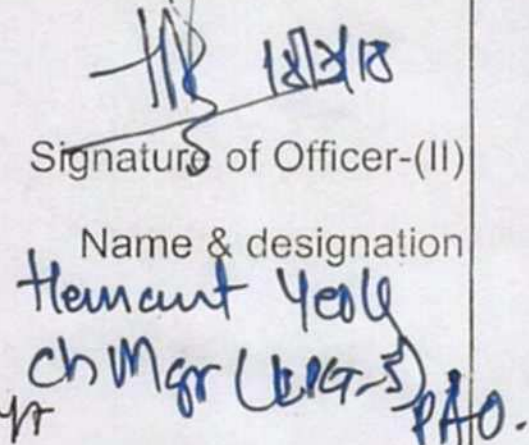 18/3/18
Signature of Officer-(II)
Name & designation
Hemant Yeole
Ch Mgr (
PAO.